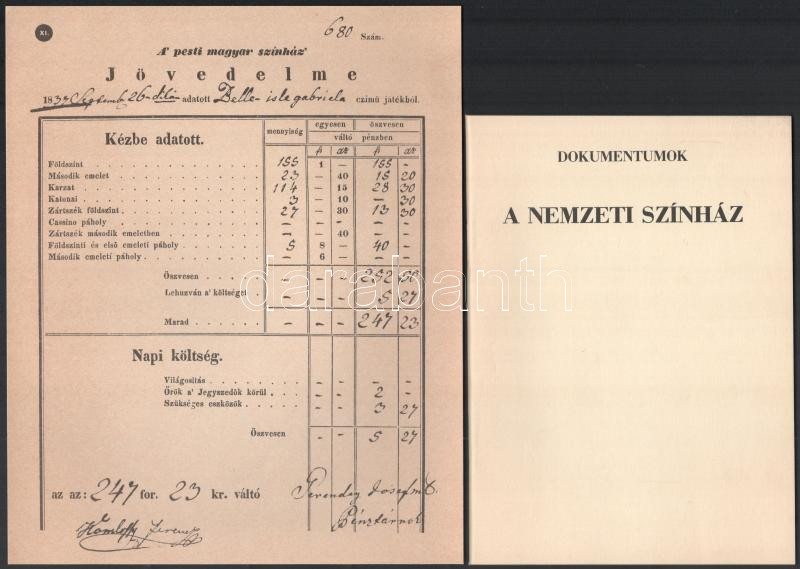 XI.
680 Szám.
A' pesti magyar színház'
Jövedelme
1837 Septemb 26-dikán adatott Belle-isle gabriela czimü játékból.
Kézbe adatott. mennyiség egyesen öszvesen
váltó pénzben
Földszint 155 1 — 155 -
Második emelet 23 — 40 15 20
Karzat 114 — 15 28 30
Katonai 3 — 10 — 30
Zártszék földszint 27 — 30 13 30
Cassino páholy — — — — —
Zártszék második emeletben — — 40 — —
Földszinti és első emeleti páholy 5 8 — 40 —
Második emeleti páholy — 6 — — —
Öszvesen — — — 252 50
Lehuzván a' költséget — — — 5 27
Marad — — — 247 23
Napi költség.
Világositás — — — —
Őrök a' Jegyszedők körül — — 2 —
Szükséges eszközök — — 3 27
Öszvesen — — 5 27
az az: 247 for. 23 kr. váltó
Pénztárnok
DOKUMENTUMOK
A NEMZETI SZÍNHÁZ
darabanth